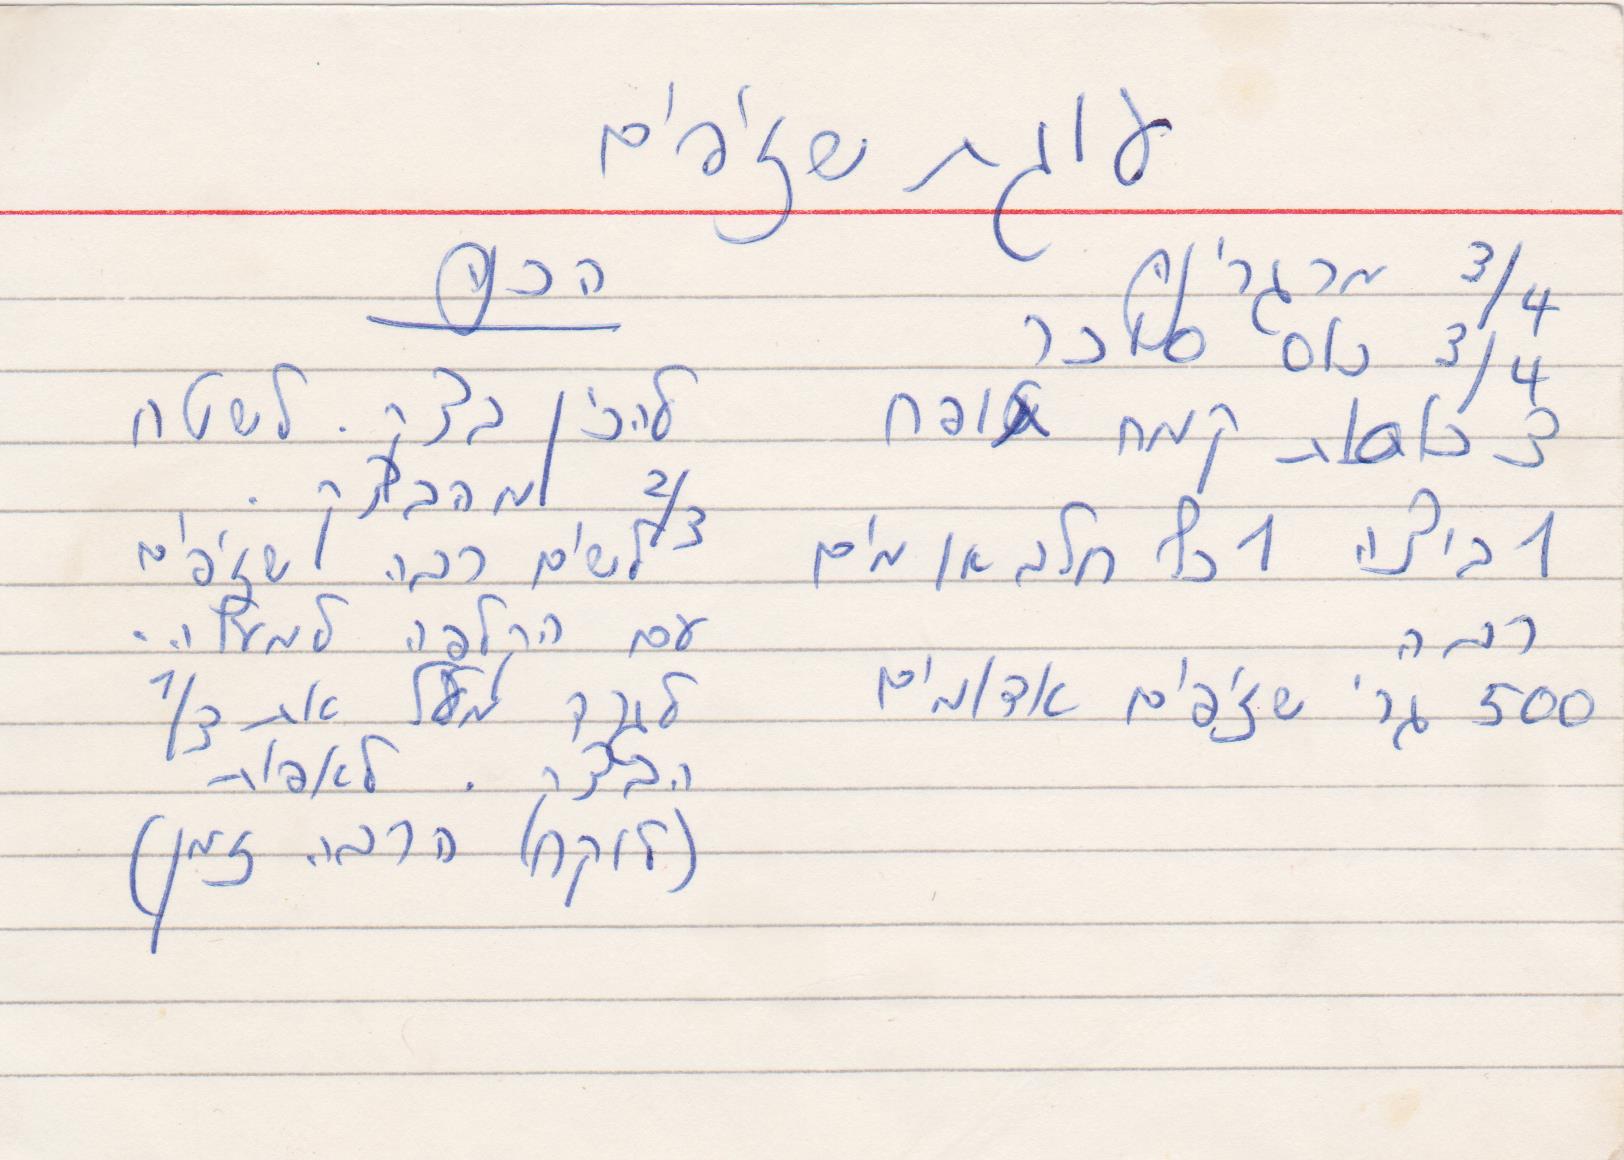 עוגת שזיפים
3/4 מרגרינה
3/4 כוס סוכר
3 כוסות קמח תופח
1 ביצה 1 כף חלב או מים
ריבה
500 גר' שזיפים אדומים
הכנה
להכין בצק. לשטח
2/3 מהבצק.
לשים ריבה ושזיפים
עם הקליפה למעלה.
לגרד מעל את 1/3
הבצק. לאפות
(לוקח הרבה זמן)